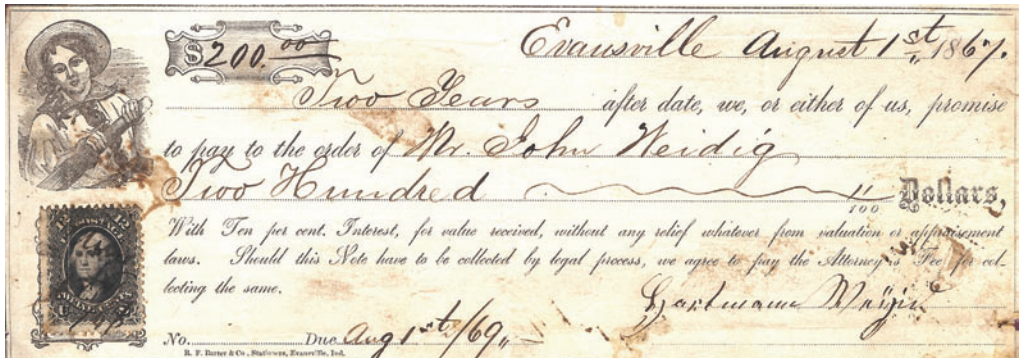 $200.00
Evansville August 1st 1867.
Two Years after date, we, or either of us, promise
to pay to the order of Mr. John Weidig
Two Hundred " /100 Dollars,
With Ten per cent. Interest, for value received, without any relief whatever from valuation or appraisement
laws. Should this Note have to be collected by legal process, we agree to pay the Attorney's Fee for col-
lecting the same.
Hartmann
No. Due Aug 1st /69
R. F. Baxter & Co., Stationers, Evansville, Ind.
12 12
U.S. POSTAGE